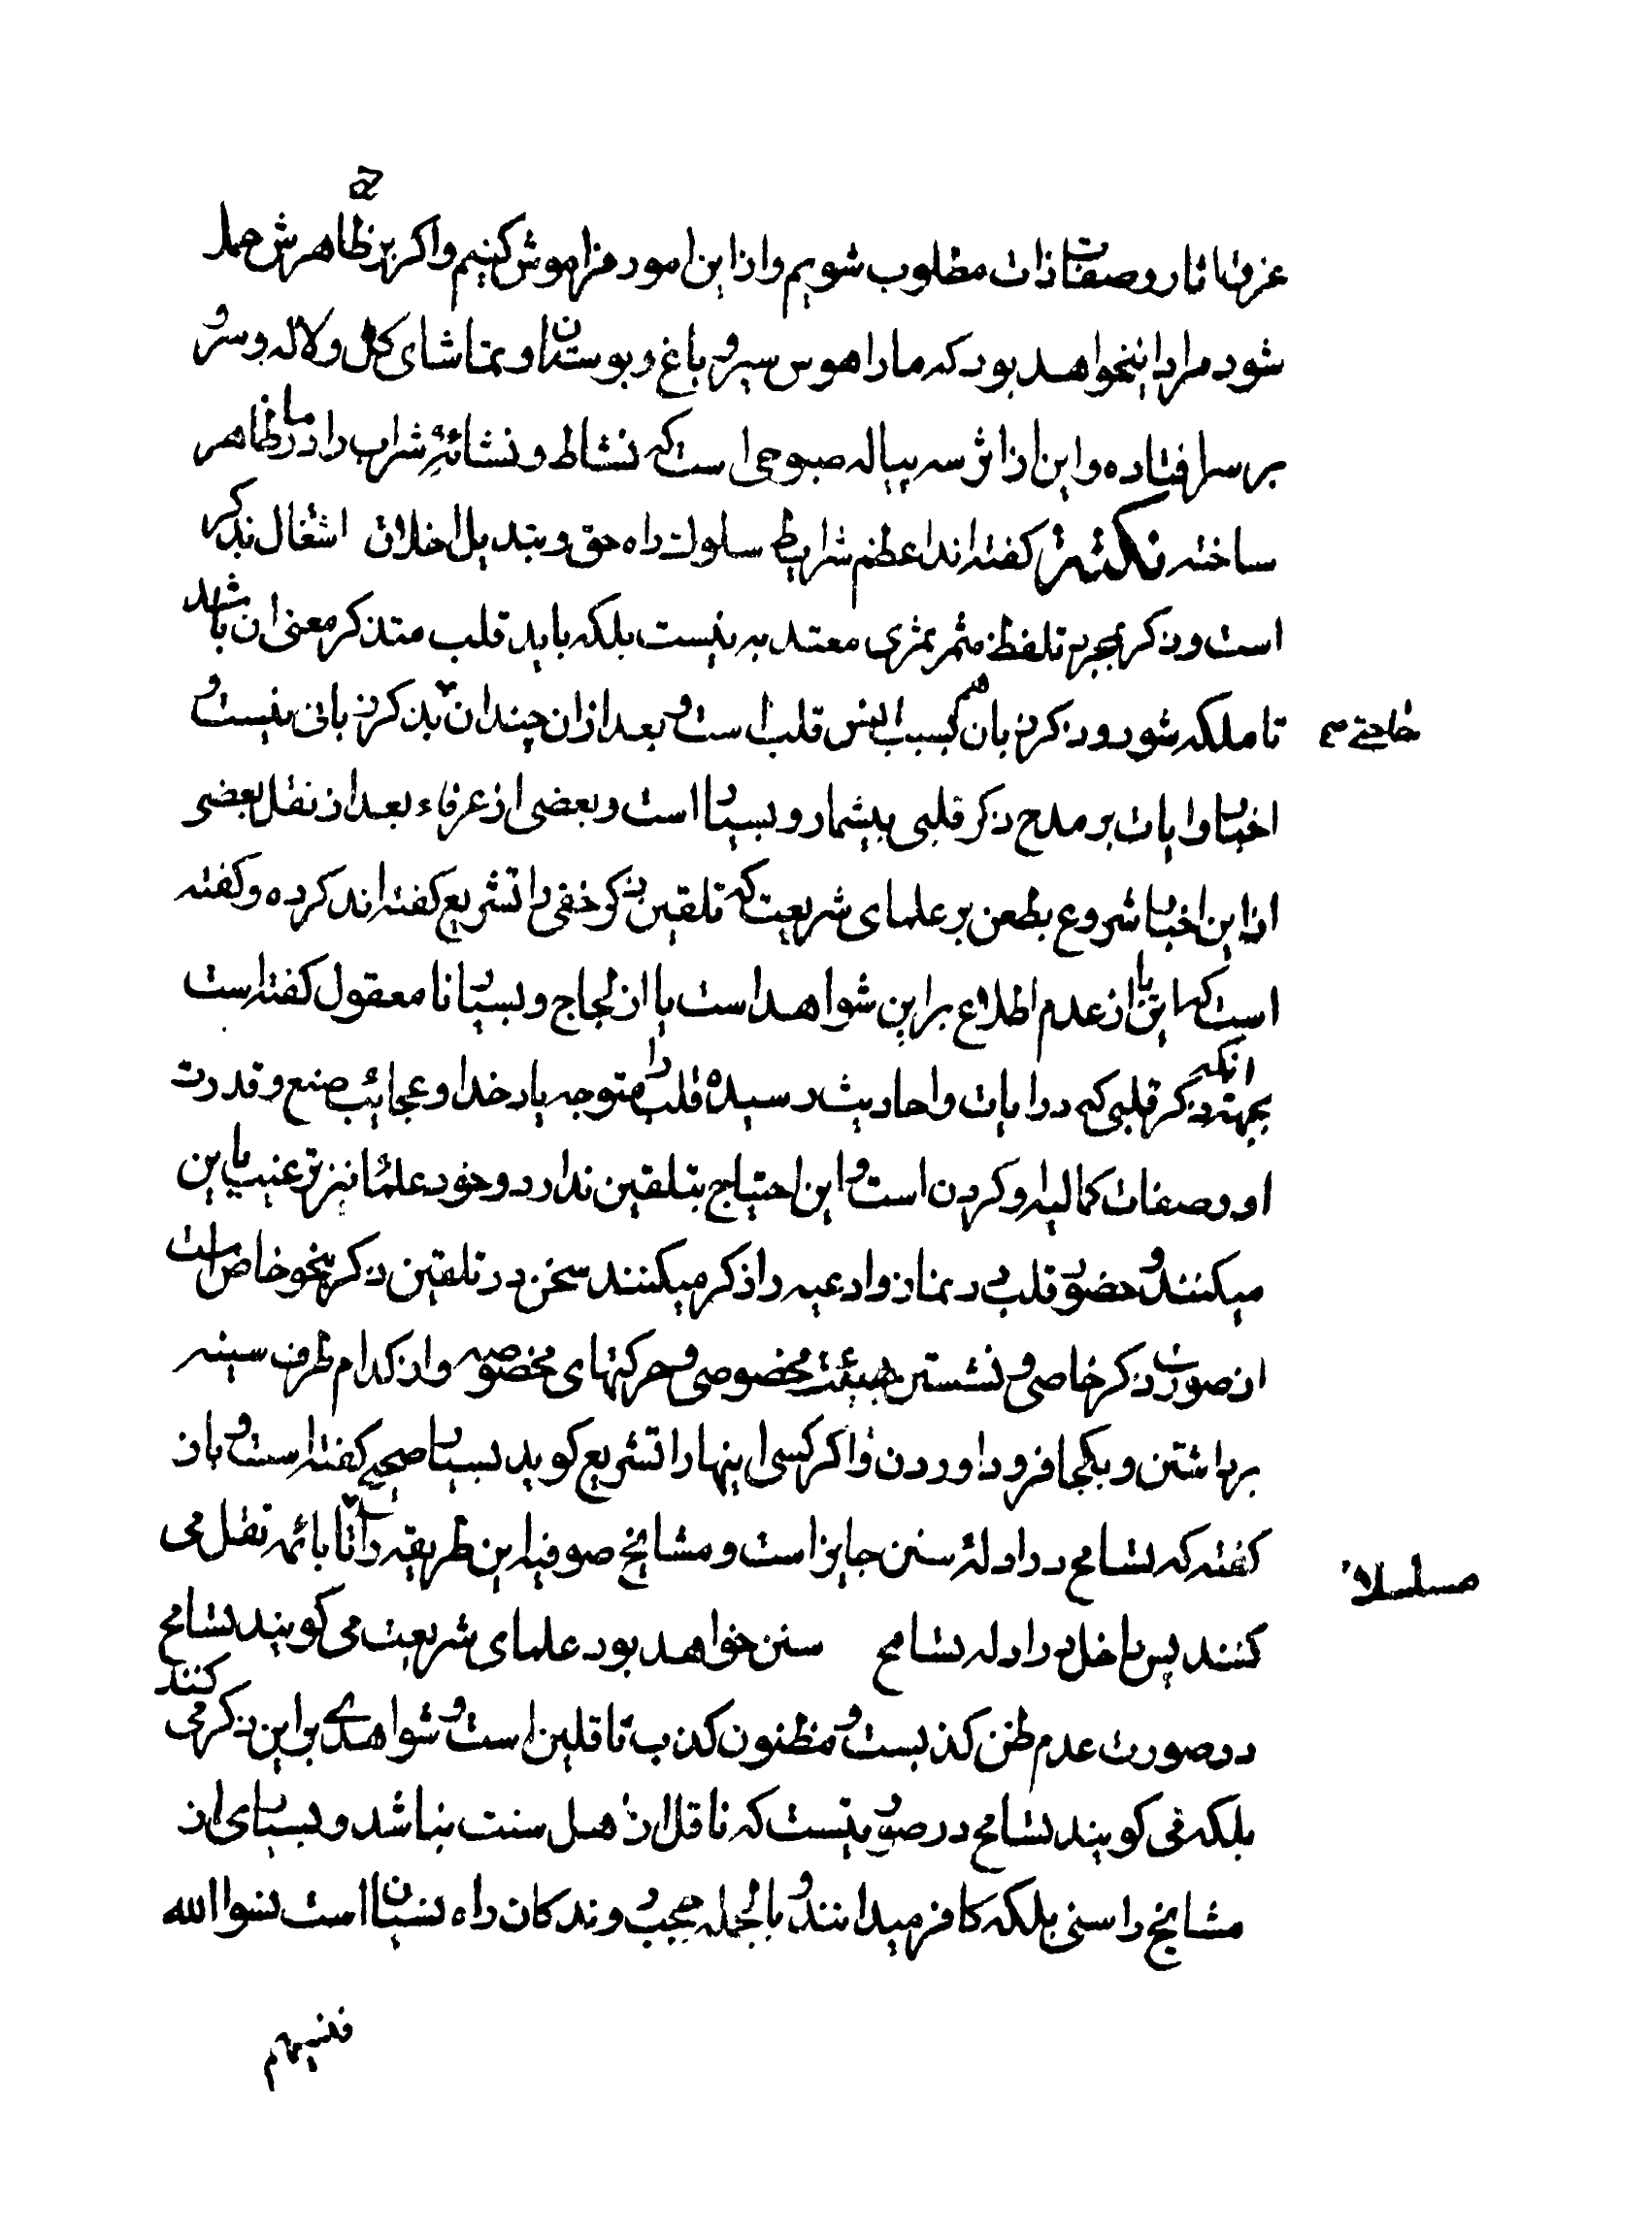 غرق اثار و صفات ذات مطلوب شویم و از این امور فراموش کنیم و اکر بر ظاهرش حمل
شود مراد این خواهد بود که ما را هوس سیر و باغ و بوستان و تماشای کل و لاله و سرو
بر سر افتاده و این از اثر سه پیاله صبوحی است که نشاط و نشائهٔ شراب را در ما ظاهر
ساخته نکته کفته اند اعظم شرایط سلوک راه حق و تبدیل اخلاق اشتغال بذکر
است و ذکر بمجرد تلفظ مثمر ثمری معتد به نیست بلکه باید قلب متذکر معنی ان باشد
تا ملکه شود و ذکر زبان هم بسبب انس قلب است و بعد از ان چندان بذکر زبانی نیست و
حاجتی
اخبار و ایات بر مدح ذکر قلبی بیشمار و بسیار است و بعضی از عرفاء بعد از نقل بعضی
از این اخبار شروع بطعن بر علمای شریعت که تلقین ذکر خفی را تشریع کفته اند کرده و کفته
است که این یا از عدم اطلاع بر این شواهد است یا از لجاج و بسیار نا معقول کفته است
بجهة انکه ذکر قلبی که در ایات و احادیث رسیده قلب را متوجه یاد خدا و عجائب صنع و قدرت
او و صفات کمالیه او کردن است و این احتیاج بتلقین ندارد و خود علما نیز ترغیب باین
میکنند و حضور قلب در نماز و ادعیه را ذکر میکنند سخن در تلقین ذکر بنحو خاص است
از صورت ذکر خاصی و نشستن بهیئت مخصوصی و حرکتهای مخصوصه و از کدام طرف سینه
برداشتن و بکجا فرود اوردن و اکر کسی اینها را تشریع کوید بسیار صحیح کفته است و باز
کفته که تسامح در ادلهٔ سنن جایز است و مشایخ صوفیه این طریقه را تا بائمه نقل می
مسلسلا
کنند پس داخل در ادله تسامح سنن خواهد بود علمای شریعت می کویند تسامح
در صورت عدم ظن کذبست و مظنون کذب ناقلین است و شواهدی بر این ذکر می کنند
بلکه می کویند تسامح در صورتیست که ناقل از اهل سنت نباشد و بسیاری از
مشایخ را سنی بلکه کافر میدانند و بالجمله حجب روندکان راه نسیان است نسوا الله
فنسیهم